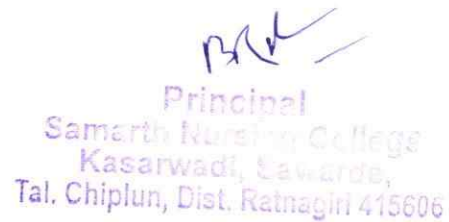 Principal
Samarth Nursing College
Kasarwadi, Sawarde,
Tal. Chiplun, Dist. Ratnagiri 415606